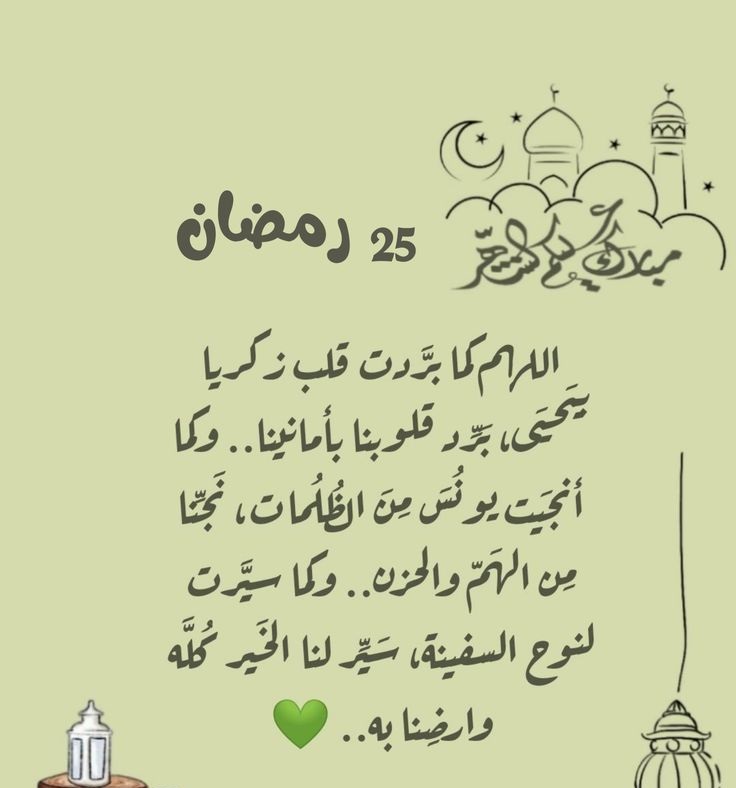 مبارك عليكم الشهر
25 رمضان
اللهم كما برَّدت قلب زكريا
بيَحيَى، بَرِّد قلوبنا بأمانينا.. وكما
أنجَيت يونُسَ مِنَ الظُلُمات، نَجِّنا
مِن الهَمّ والحزن.. وكما سيَّرت
لنوح السفينة، سَيِّر لنا الخَير كُلَّه
وارضِنا به.. 💚